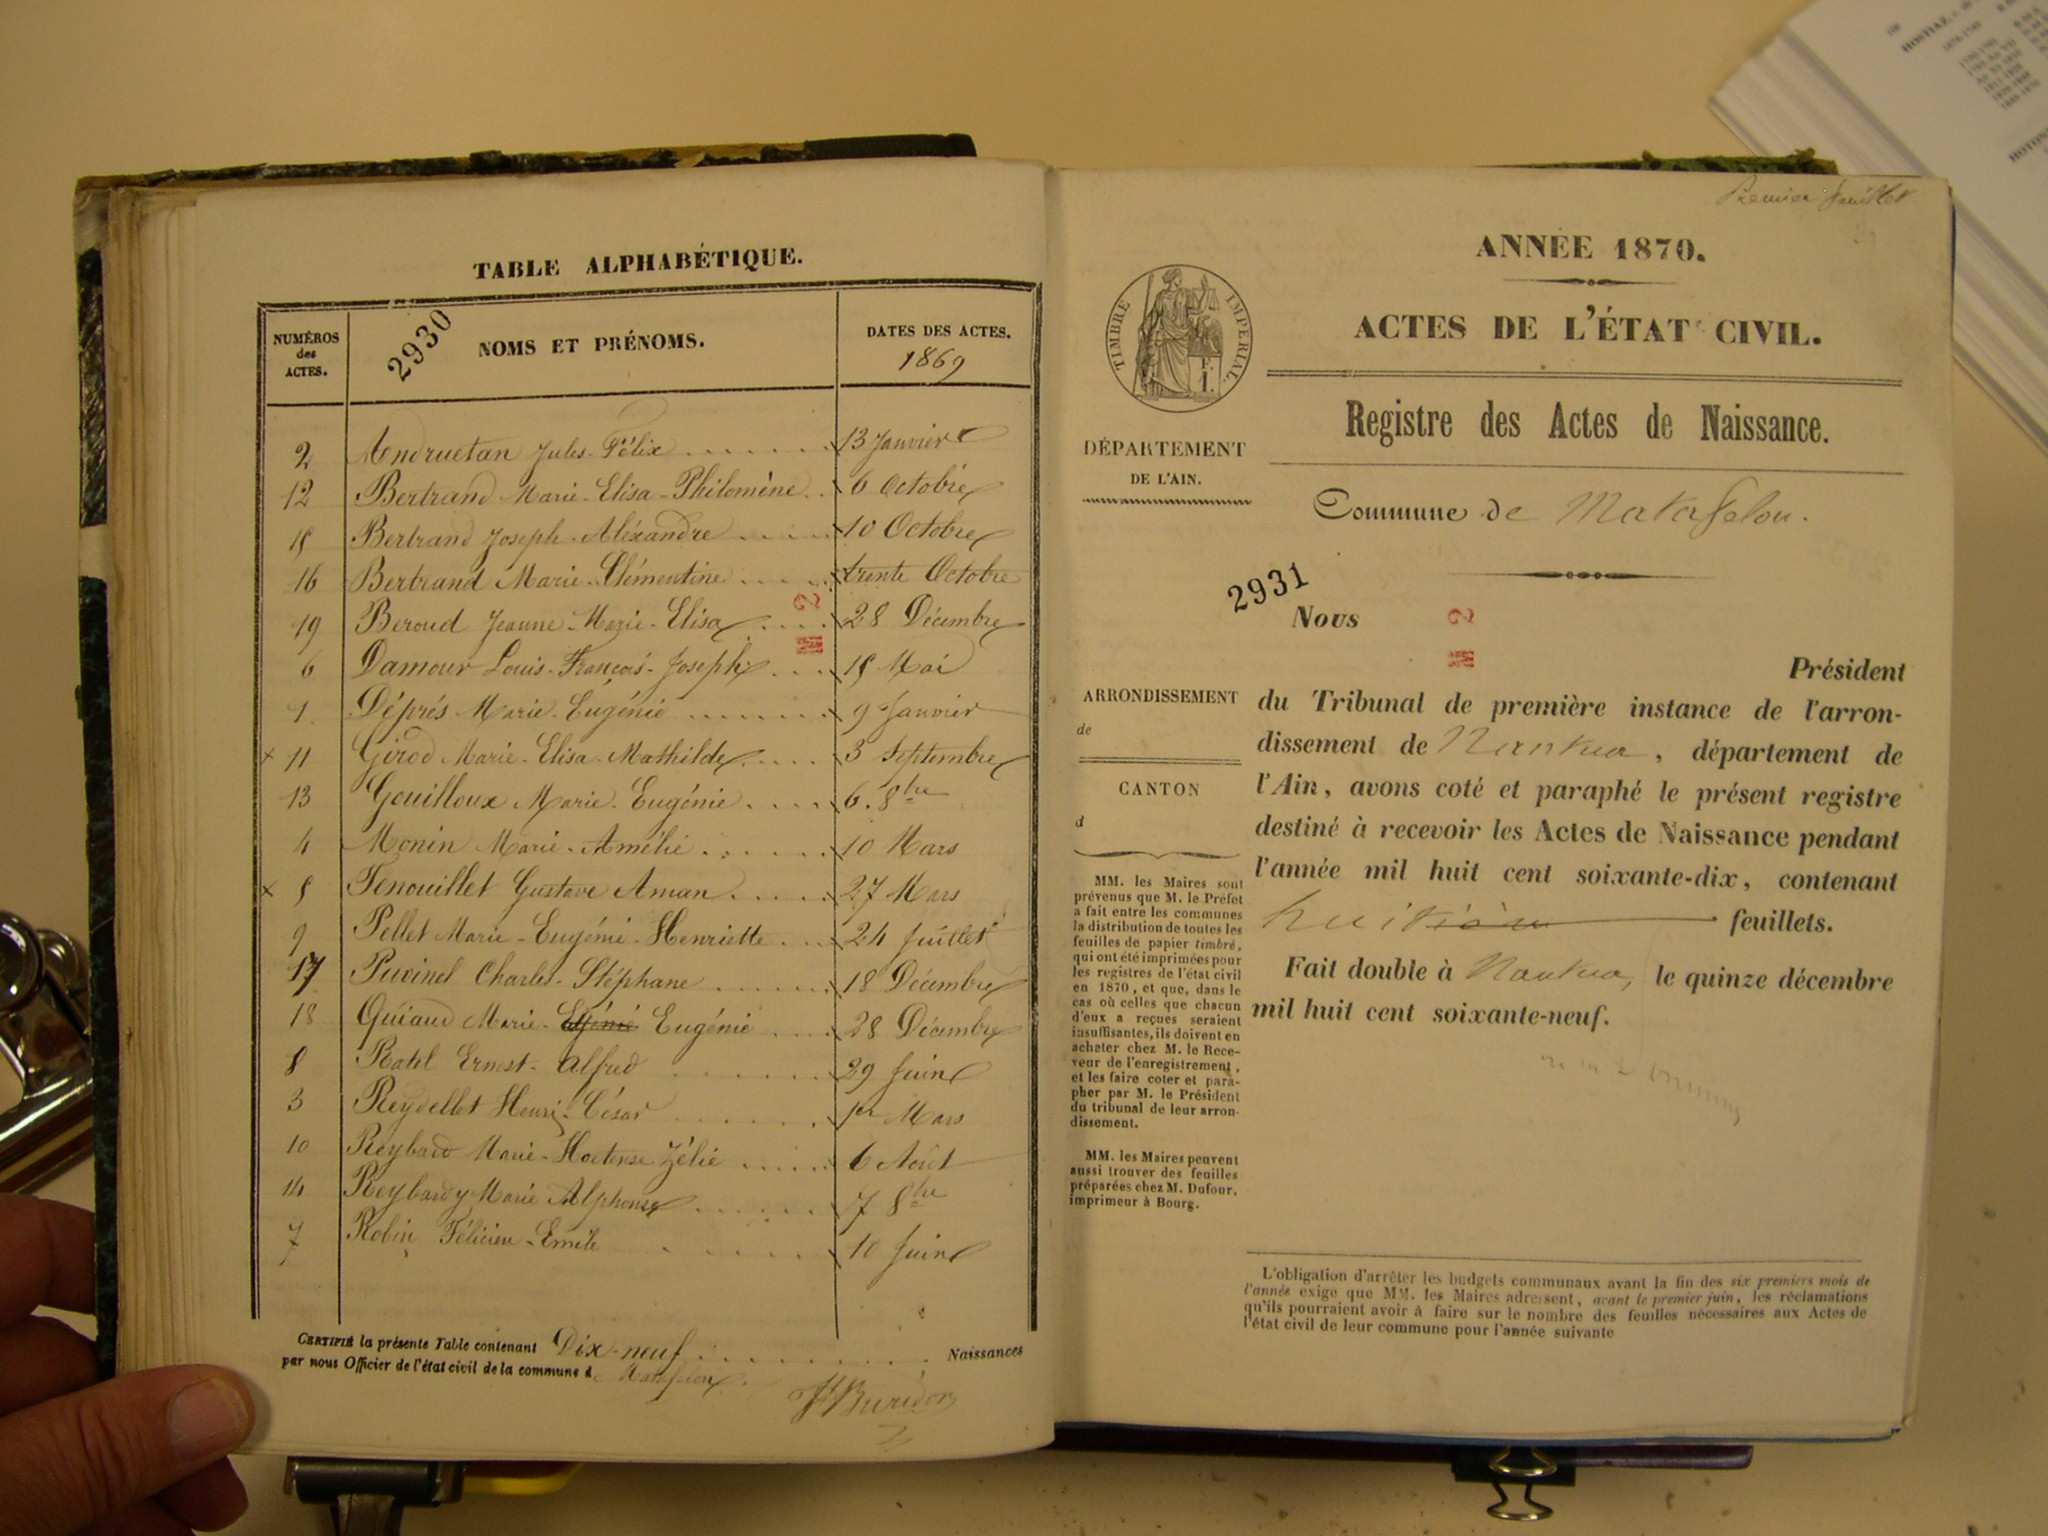 TABLE ALPHABÉTIQUE.
NUMÉROS des ACTES.
2930
NOMS ET PRÉNOMS.
DATES DES ACTES.
1869
2 Andruetan Jules-Félix 13 Janvier
12 Bertrand Marie-Elisa-Philomène 6 Octobre
15 Bertrand Joseph-Aléxandre 10 Octobre
16 Bertrand Marie-Clémentine trente Octobre
19 Beroud Jeanne-Marie-Elisa 28 Décembre
6 Damour Louis-François-Joseph 15 Mai
1 Déprés Marie-Eugénie 9 Janvier
x 11 Girod Marie-Elisa-Mathilde 3 Septembre
13 Gouilloux Marie-Eugénie 6. 8bre
4 Monin Marie-Amélie 10 Mars
x 5 Fenouillet Gustave Aman 27 Mars
9 Pellet Marie-Eugénie-Henriette 24 Juillet
17 Puvinel Charles-Stéphane 18 Décembre
18 Quiaud Marie- Eugénie 28 Décembre
8 Ernest-Alfred 29 Juin
3 Reydellet Henri-César 1er Mars
10 Reybard Marie-Hortense Zélie 6 Août
14 Reybard Marie Alphonse 7 8bre
7 Robin Félicien-Emile 10 Juin
CERTIFIÉ la présente Table contenant Dix-neuf Naissances
par nous Officier de l'état civil de la commune de Matafelon
Buridon
Premier feuillet
ANNÉE 1870.
TIMBRE IMPERIAL.
F.
1.
ACTES DE L'ÉTAT CIVIL.
Registre des Actes de Naissance.
DÉPARTEMENT
DE L'AIN.
Commune de Matafelon.
2931
Nous
Président
du Tribunal de première instance de l'arron-
dissement de Nantua, département de
l'Ain, avons coté et paraphé le présent registre
destiné à recevoir les Actes de Naissance pendant
l'année mil huit cent soixante-dix, contenant
huit feuillets.
Fait double à Nantua, le quinze décembre
mil huit cent soixante-neuf.
ARRONDISSEMENT
de
CANTON
d
MM. les Maires sont
prévenus que M. le Préfet
a fait entre les communes
la distribution de toutes les
feuilles de papier timbré,
qui ont été imprimées pour
les registres de l'état civil
en 1870, et que, dans le
cas où celles que chacun
d'eux a reçues seraient
insuffisantes, ils doivent en
acheter chez M. le Rece-
veur de l'enregistrement,
et les faire coter et para-
pher par M. le Président
du tribunal de leur arron-
dissement.
MM. les Maires peuvent
aussi trouver des feuilles
préparées chez M. Dufour,
imprimeur à Bourg.
L'obligation d'arrêter les budgets communaux avant la fin des six premiers mois de
l'année exige que MM. les Maires adressent, avant le premier juin, les réclamations
qu'ils pourraient avoir à faire sur le nombre des feuilles nécessaires aux Actes de
l'état civil de leur commune pour l'année suivante